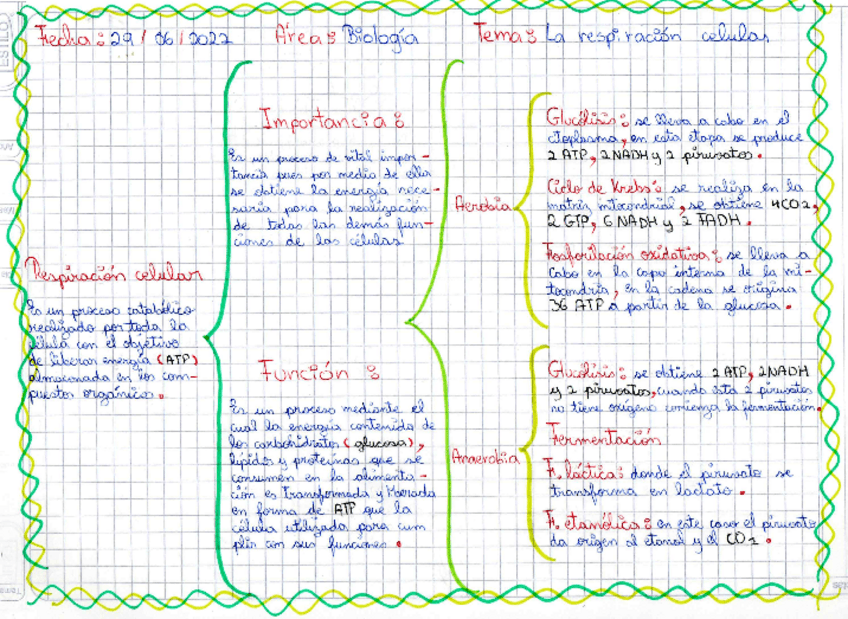 Fecha: 29 / 06 / 2022 Área: Biología Tema: La respiración celular
Respiración celular
Es un proceso catabólico
realizado por toda la
célula con el objetivo
de liberar energía (ATP)
almacenada en los com-
puestos orgánicos.
Importancia:
Es un proceso de vital impor-
tancia pues por medio de ella
se obtiene la energía nece-
saria para la realización
de todas las demás fun-
ciones de las células
Función:
Es un proceso mediante el
cual la energía contenida de
los carbohidratos (glucosa),
lípidos y proteínas que se
consumen en la alimenta-
ción es transformada y liberada
en forma de ATP que la
célula utilizada para cum
plir con sus funciones.
Aerobia
Glucólisis: se lleva a cabo en el
citoplasma, en esta etapa se produce
2 ATP, 2 NADH y 2 piruvatos.
Ciclo de Krebs: se realiza en la
matriz mitocondrial, se obtiene 4CO2,
2 GTP, 6 NADH y 2 FADH.
Fosforilación oxidativa: se lleva a
cabo en la capa interna de la mi-
tocondria, en la cadena se origina
36 ATP a partir de la glucosa.
Anaerobia
Glucólisis: se obtiene 2 ATP, 2NADH
y 2 piruvatos, cuando esta 2 piruvatos
no tiene oxígeno comienza la fermentación.
Fermentación
F. láctica: donde el piruvato se
transforma en lactato.
F. etanólica: en este caso el piruvato
da origen al etanol y al CO2.